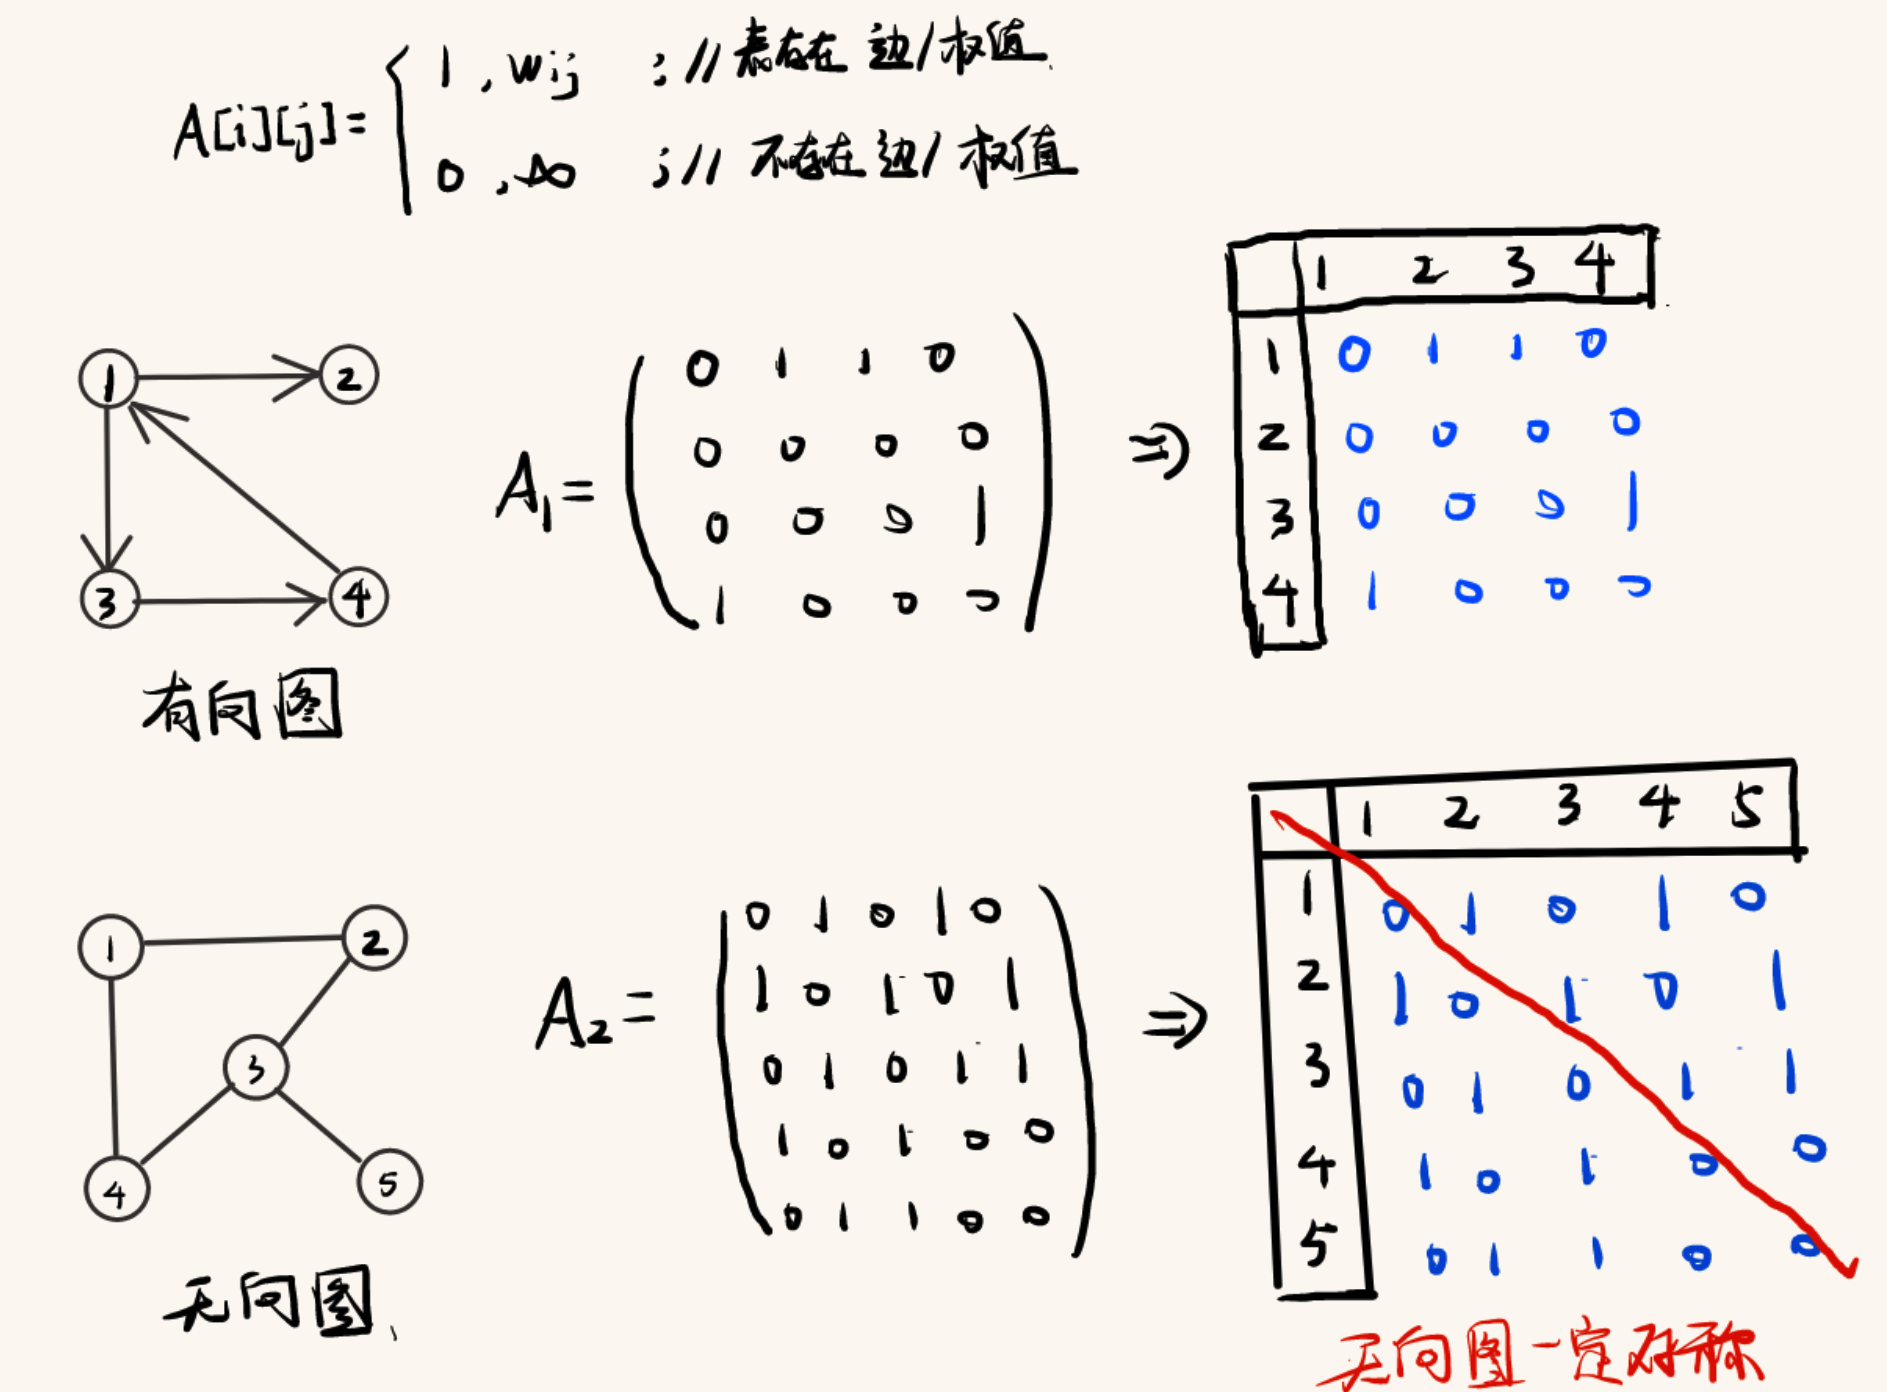 A[i][j]=
1 , wij ; // 表存在 边/权值
0 , ∞ ; // 不存在 边/权值
1 2
3 4
有向图
A₁=
0 1 1 0
0 0 0 0
0 0 0 1
1 0 0 0
⇒
1 2 3 4
1 0 1 1 0
2 0 0 0 0
3 0 0 0 1
4 1 0 0 0
1 2
3
4 5
无向图
A₂=
0 1 0 1 0
1 0 1 0 1
0 1 0 1 1
1 0 1 0 0
0 1 1 0 0
⇒
1 2 3 4 5
1 0 1 0 1 0
2 1 0 1 0 1
3 0 1 0 1 1
4 1 0 1 0 0
5 0 1 1 0 0
无向图一定对称